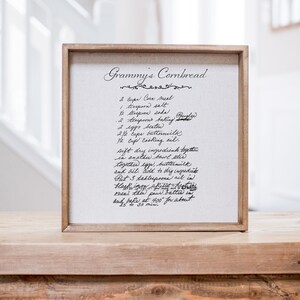 Grammy's Cornbread
2 cups Corn meal
1 teaspoon salt
½ teaspoon soda
2 teaspoons baking Powder
2 eggs beaten
2½ cups buttermilk
¼ cup cooking oil
sift dry ingredients together
in another bowl stir
together eggs, buttermilk
and oil. add to dry ingredients
Put 3 tablespoons oil in
black iron skillet
pour batter in
and bake at 400° for about
25 to 30 min.